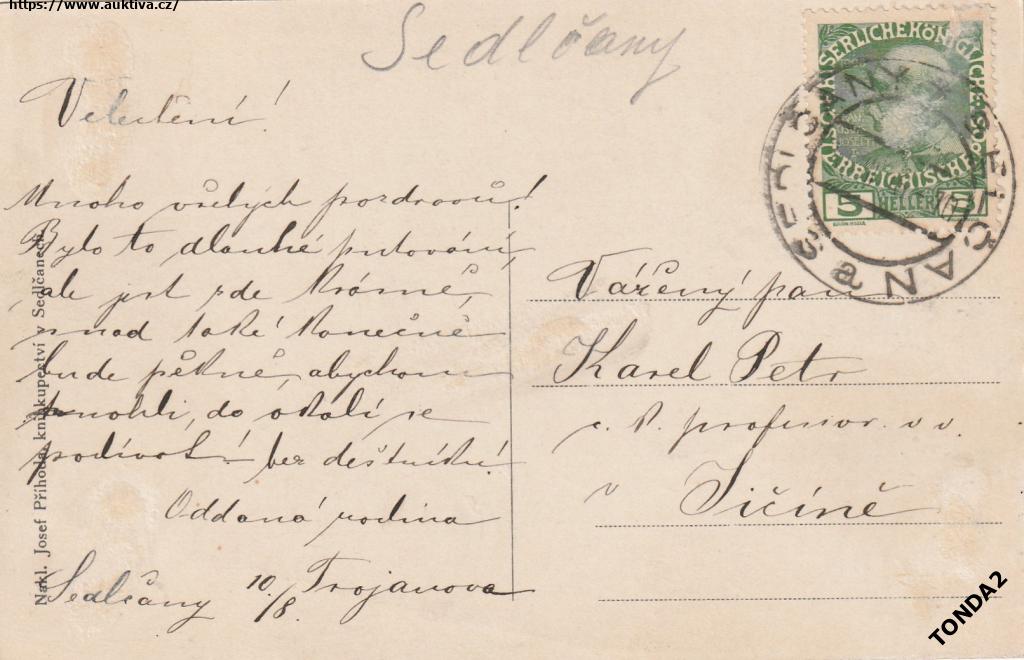 https://www.auktiva.cz/
Sedlčany
Velectění!
Mnoho vřelých pozdravů!
Bylo to dlouhé putování,
ale jest zde krásně,
snad také konečně
bude pěkně, abychom
mohli, do okolí se
podívat! bez deštníků!
Oddaná rodina
Trojanova
Sedlčany 10/8.
Nakl. Josef Příhoda, knihkupectví v Sedlčanech.
KAISERLICHE KÖNIGLICHE
ÖSTERREICHISCHE
5 HELLER 5
SEDLČANY
SELČAN
a
Vážený pan
Karel Petr
c. k. professor v. v.
v Jičíně
TONDA2